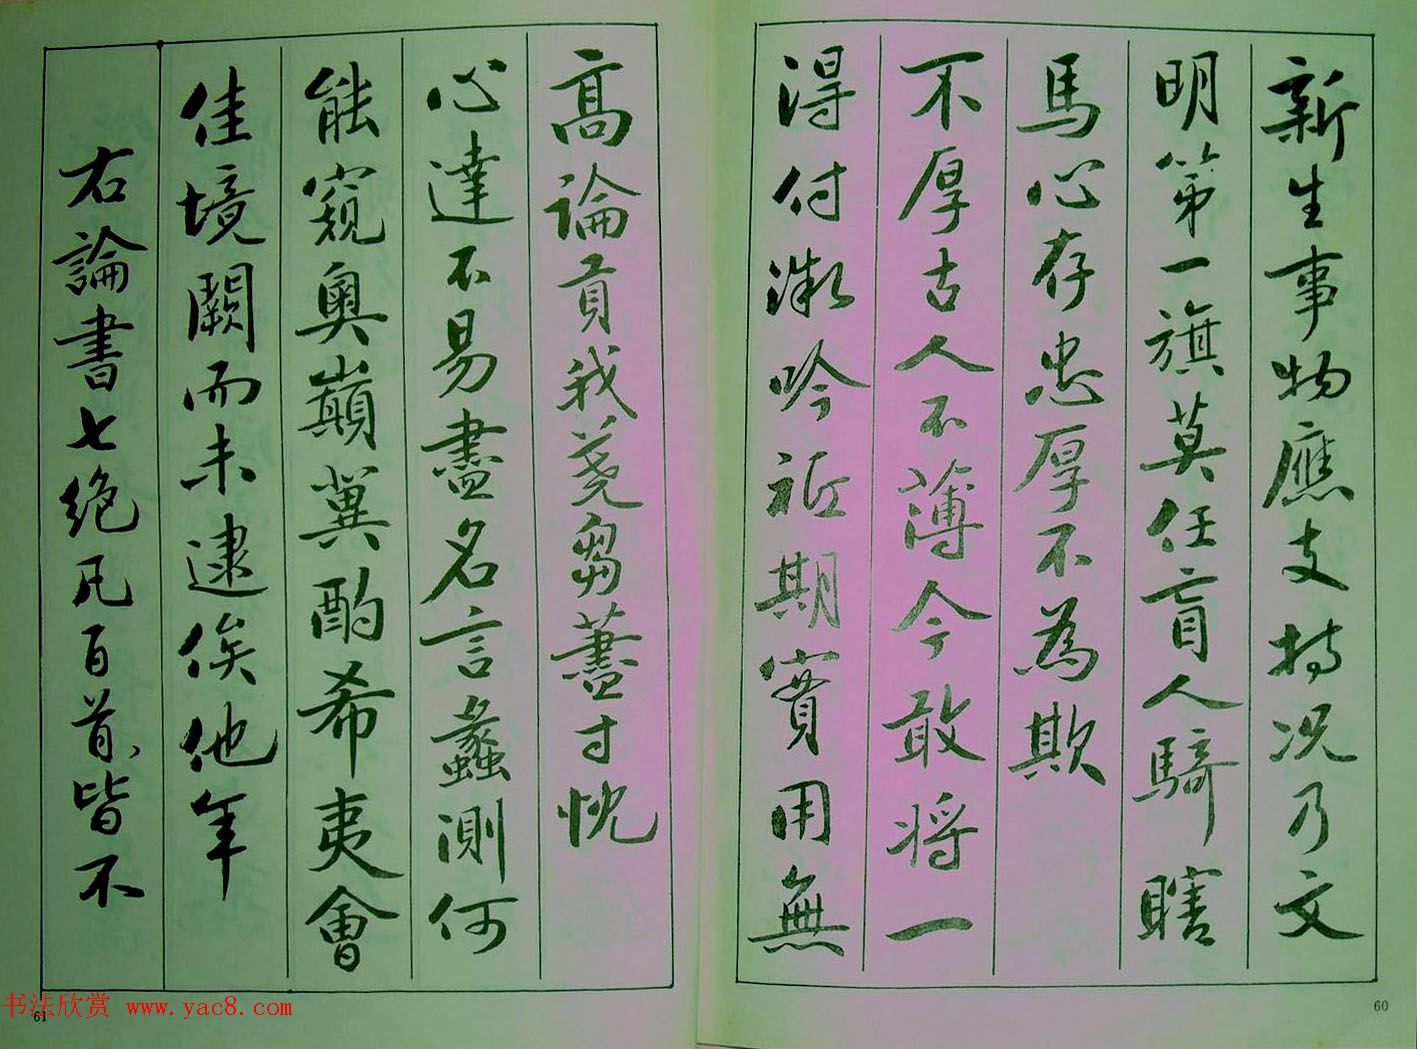 新生事物應支持况乃文
明第一旗莫任盲人騎瞎
馬心存忠厚不為欺
不厚古人不薄今敢将一
得付微吟祗期實用無
高論貢我蒭蕘盡寸忱
心達不易盡名言蠡測何
能窺奥巔冀酌希夷會
佳境闕而未逮俟他年
右論書七絶凡百首皆不
书法欣赏 www.yac8.com
61
60